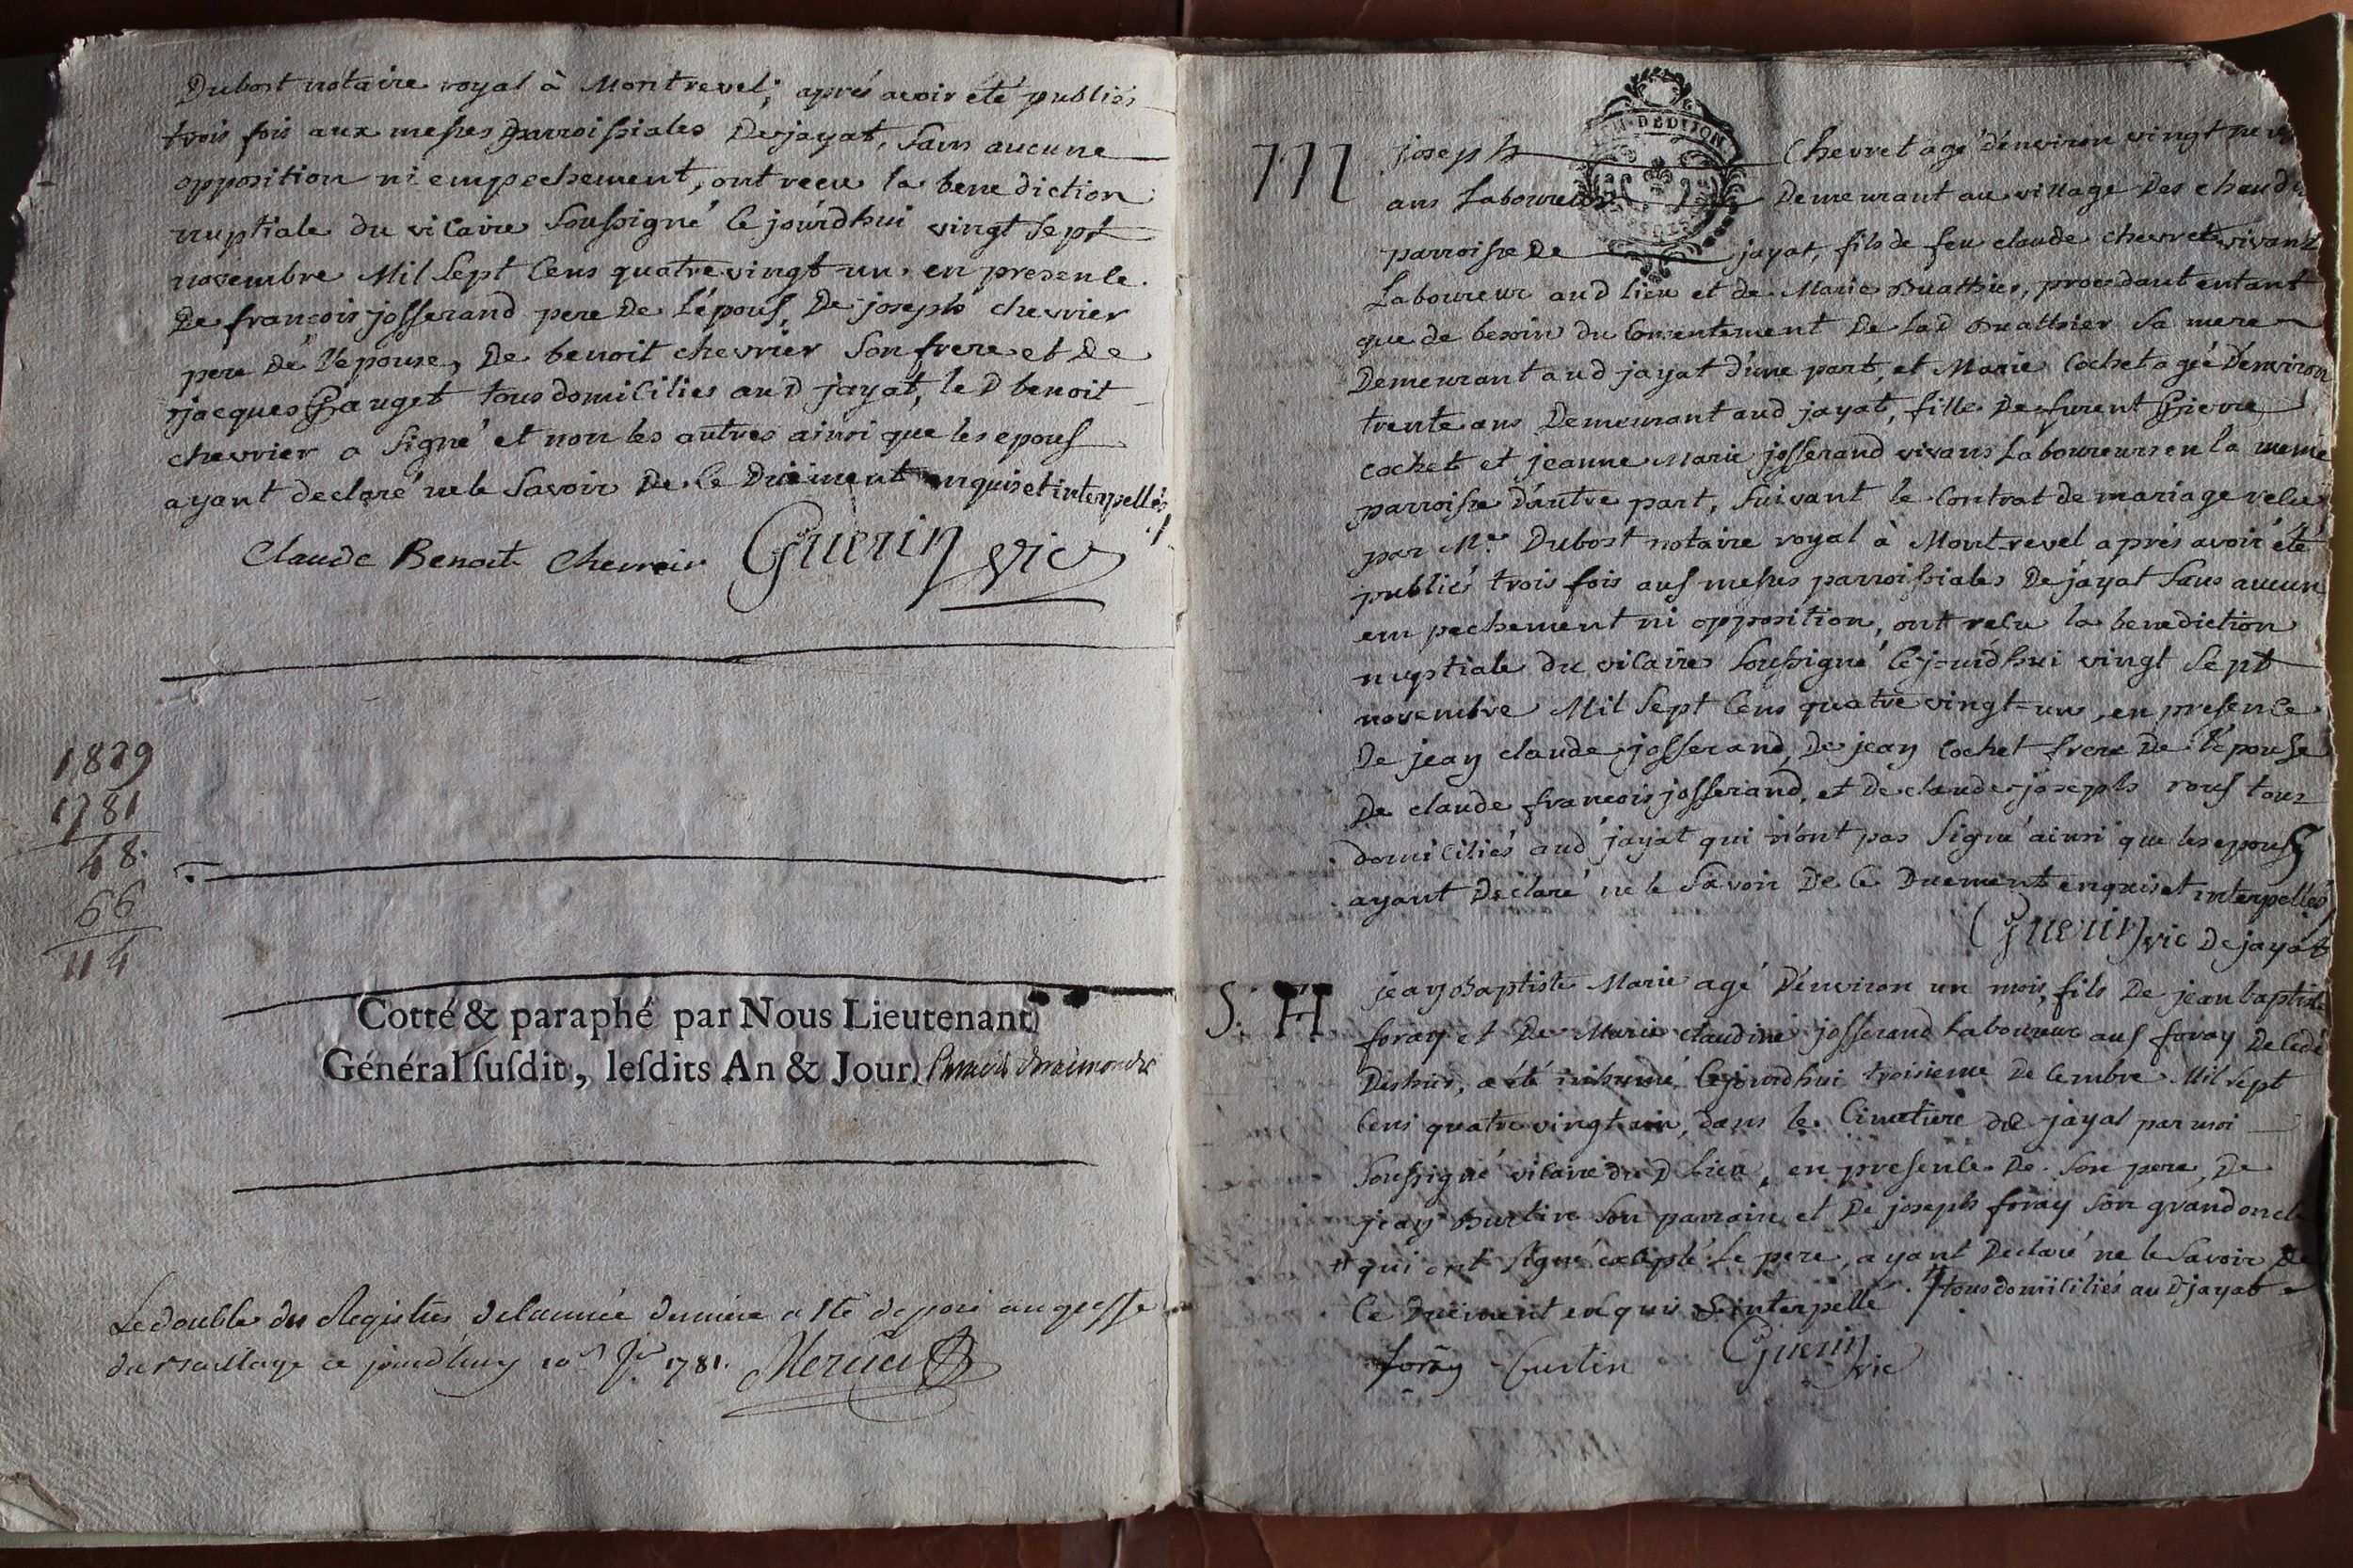 Dubost notaire royal à Montrevel; aprés avoir été publiés
trois fois aux messes parroissiales De jayat, sans aucune
opposition ni empechement, ont recu la benediction
nuptiale du vicaire soussigné cejourdhui vingt sept
novembre Mil sept cens quatre vingt un, en presence
De francois josserand pere De l'épous, De joseph chevrier
pere de l'épouse, De benoit chevrier son frere et De
jacques Pauget tous domiciliés aud jayat, le D benoit
chevrier a signé et non les autres ainsi que les epous
ayant declaré ne le savoir De ce Duëment enquis et interpellés
Claude Benoit Chevrier Guerin vic
1829
1781
48
66
114
Cotté & paraphé par Nous Lieutenant
Général susdit, lesdits An & Jour
Le double des Registres de l'année derniere a été deposé au greffe
du Bailliage ce jourdhuy 10 1781.
CH. DE DIJON
M joseph Chevret agé d'environ vingt
ans Laboureur Demeurant au village Des
parroisse De jayat, fils de feu claude chevret vivant
Laboureur aud lieu et de Marie Buathier, procedant entant
que de besoin du consentement De lad Buathier sa mere
Demeurant aud jayat d'une part, et Marie Cochet agée D'environ
trente ans Demeurant aud jayat, fille De furent Pierre
cochet et jeanne Marie josserand vivans Laboureurs en la meme
parroisse D'autre part, suivant le contrat de mariage recu
par Me Dubost notaire royal à Montrevel aprés avoir été
publiés trois fois aus messes parroissiales De jayat sans aucun
empechement ni opposition, ont recu la benediction
nuptiale du vicaire soussigné cejourdhui vingt sept
novembre Mil sept cens quatre vingt-un, en presence
De jean claude josserand, De jean Cochet frere De l'épouse
De claude francois josserand, et De claude joseph rous tous
domiciliés aud jayat qui n'ont pas signé ainsi que les epous
ayant Declaré ne le savoir De ce Duement enquis et interpellés
Guerin vic De jayat
S. H jean Baptiste Marie agé D'environ un mois, fils De jean baptiste
foray et De Marie claudine josserand Laboureur aus foray
Dessus, a été inhumé cejourdhui troisieme Decembre Mil sept
cens quatre vingt un, dans le Cimetiere de jayat par moi
soussigné vicaire du D lieu, en presence De son pere, De
jean Burtin son parrain et De joseph foray son grand oncle
# qui ont signé excepté le pere, ayant Declaré ne le savoir De
ce Duëment enquis & interpellé. # tous domiciliés au D jayat
foray Curtin Guerin vic